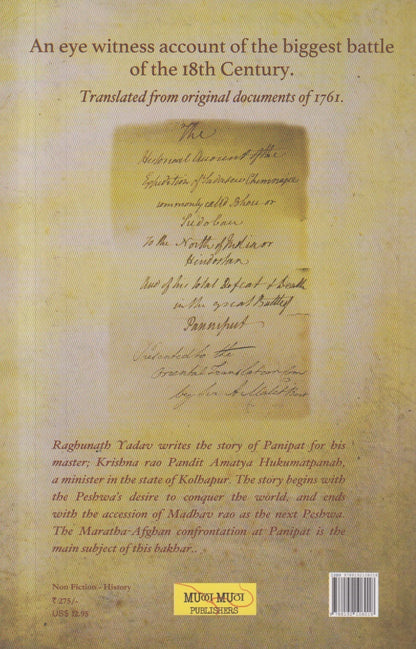 An eye witness account of the biggest battle
of the 18th Century.
Translated from original documents of 1761.
The
Historical Account of the
Expedition of Sadasew Chemnajee
commonly called Bhou or
Sudobau
To the North of India or
Hindostan
And of his total Defeat & Death
in the great Battle of
Panniput
Presented to the
Oriental Translation
by Sir
Raghunath Yadav writes the story of Panipat for his
master; Krishna rao Pandit Amatya Hukumatpanah,
a minister in the state of Kolhapur. The story begins with
the Peshwa's desire to conquer the world, and ends
with the accession of Madhav rao as the next Peshwa.
The Maratha-Afghan confrontation at Panipat is the
main subject of this bakhar..
Non Fiction - History
₹ 275/-
US$ 12.95
PUBLISHERS